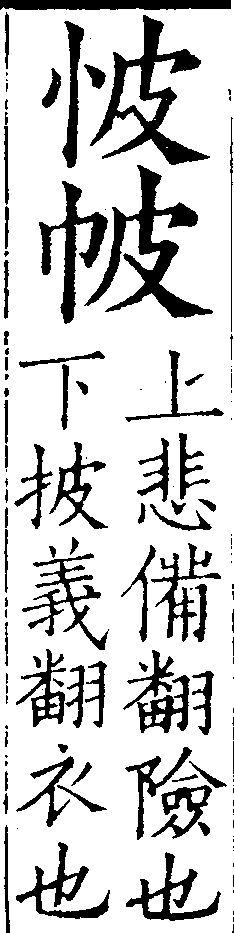 怶帔
上悲備翻險也
下披義翻衣也